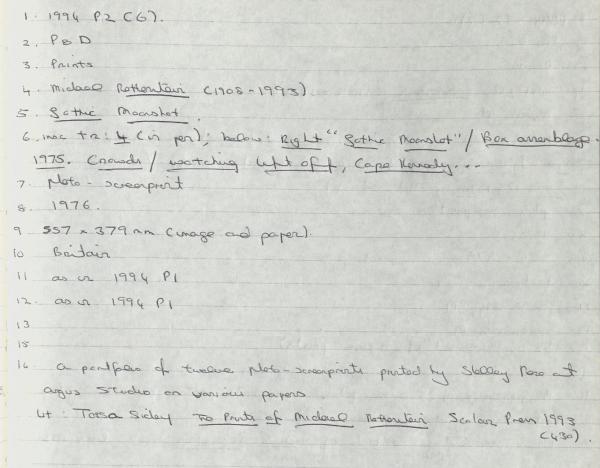 1. 1994 P2 (6).
2. P & D
3. Prints
4. Michael Rothenstein (1908-1993)
5. Gothic Moonshot.
6. insc TR: 4 (in pen); below: Right "Gothic Moonshot" / Box assemblage.
1975. Crowds / watching lift off, Cape Kennedy...
7. Photo-screenprint
8. 1976.
9 557 x 379 mm (image and paper).
10 Britain
11 as in 1994 P1
12. as in 1994 P1
13
15
16 a portfolio of twelve photo-screenprints printed by Shelley Rose at
Argus Studio on various papers
Lit: Tessa Sidey The Prints of Michael Rothenstein Scolar Press 1993
(430).